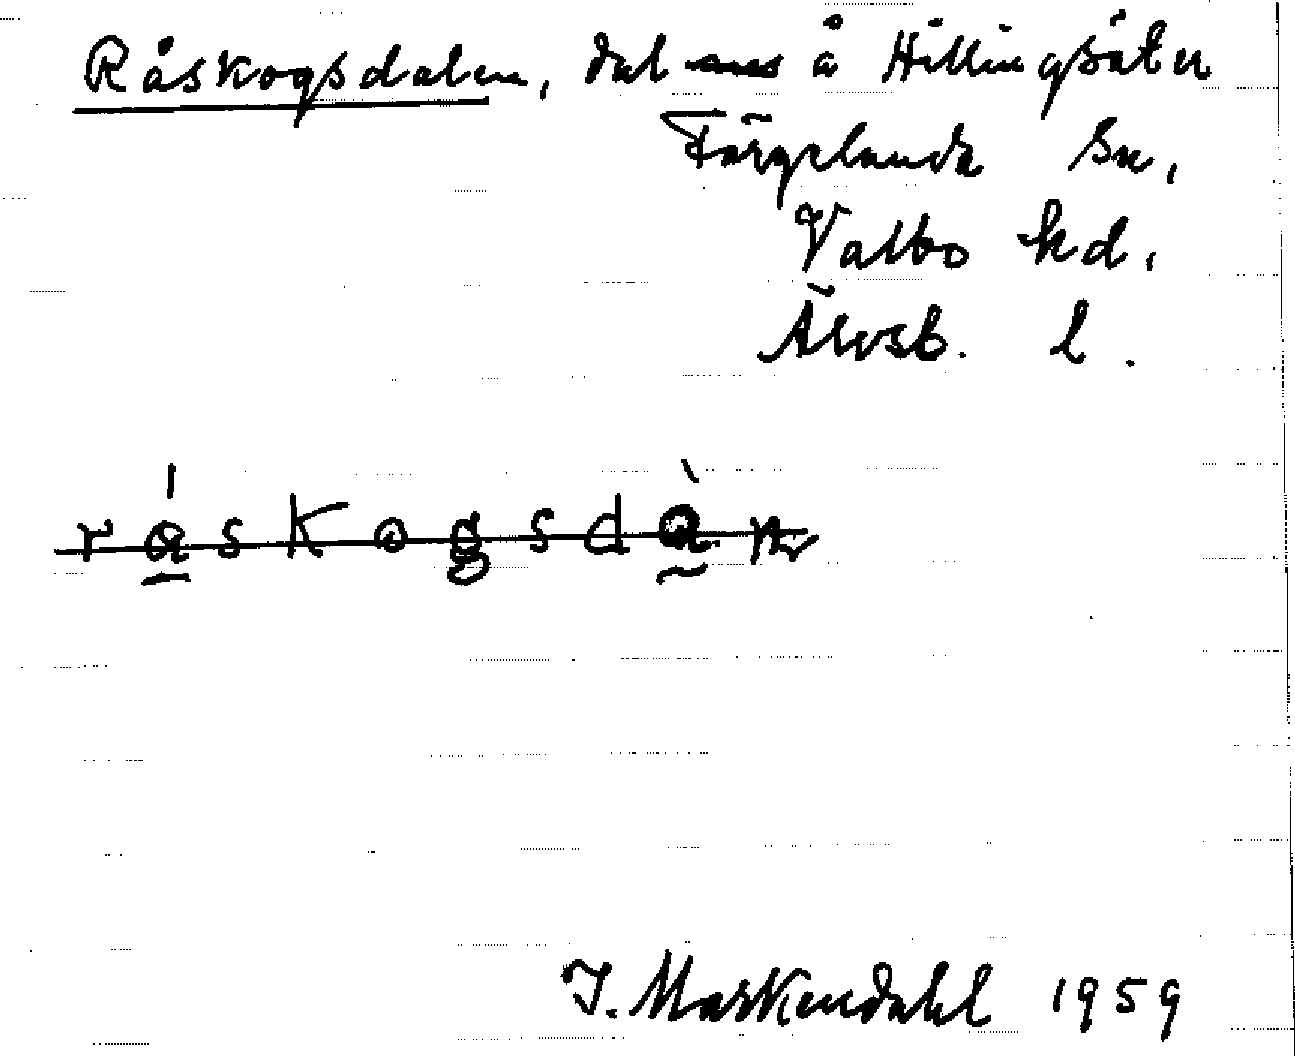 Råskogsdalen, dal å Hillingsäter
Färgelanda sn,
Valbo hd,
Älvsb. l.
råskogsdàn
I. Markendahl 1959